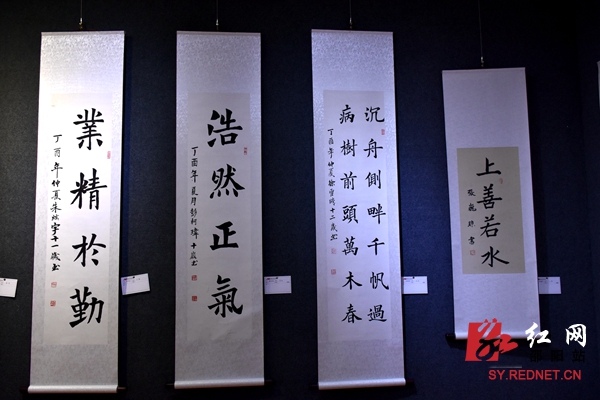 業精於勤
丁酉年仲夏朱
十一歲書
浩然正氣
丁酉年夏月彭柯
十歲書
沉舟側畔千帆過
病樹前頭萬木春
丁酉年仲夏徐
十二歲書
上善若水
張
書
红网
SY.REDNET.CN